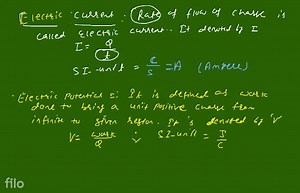 Electric Current : Rate of flow of charge is
called electric current. It denoted by I
I = Q
t
SI-unit = C/S = A (Ampere)
• Electric Potential : It is defined as work
done to bring a unit positive charge from
infinite to given region. It is denoted by 'V'
V = work/Q ∴ SI-unit = J/C
filo